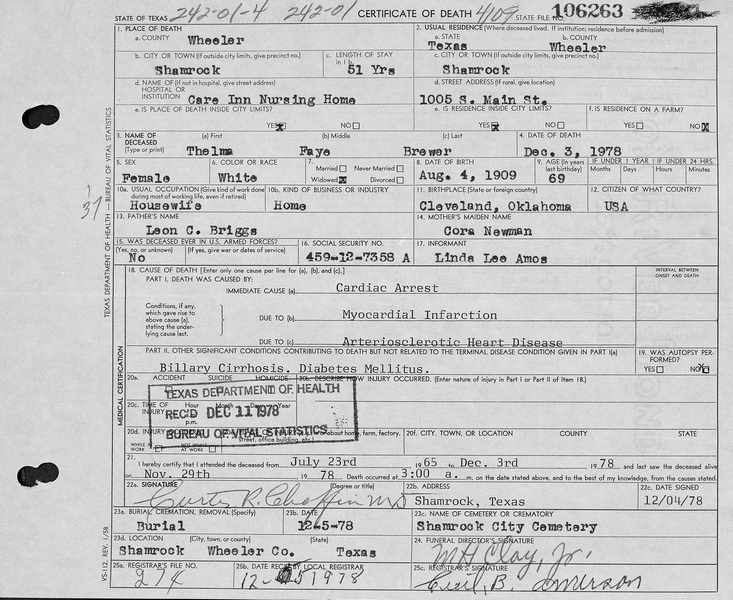 242-01-4 242-01 4109
STATE OF TEXAS CERTIFICATE OF DEATH STATE FILE NO. 106263
1. PLACE OF DEATH 2. USUAL RESIDENCE (Where deceased lived. If institution: residence before admission)
a. COUNTY Wheeler a. STATE Texas b. COUNTY Wheeler
b. CITY OR TOWN (If outside city limits, give precinct no.) c. LENGTH OF STAY in 1 b. c. CITY OR TOWN (If outside city limits, give precinct no.)
Shamrock 51 Yrs Shamrock
d. NAME OF (If not in hospital, give street address) HOSPITAL OR INSTITUTION d. STREET ADDRESS (If rural, give location)
Care Inn Nursing Home 1005 S. Main St.
e. IS PLACE OF DEATH INSIDE CITY LIMITS? e. IS RESIDENCE INSIDE CITY LIMITS? f. IS RESIDENCE ON A FARM?
YES X NO YES X NO YES NO X
3. NAME OF DECEASED (Type or print) (a) First (b) Middle (c) Last 4. DATE OF DEATH
Thelma Faye Brewer Dec. 3, 1978
5. SEX 6. COLOR OR RACE 7. Married Never Married Widowed X Divorced 8. DATE OF BIRTH 9. AGE (In years last birthday) IF UNDER 1 YEAR IF UNDER 24 HRS.
Months Days Hours Minutes
Female White Aug. 4, 1909 69
10a. USUAL OCCUPATION (Give kind of work done during most of working life, even if retired) 10b. KIND OF BUSINESS OR INDUSTRY 11. BIRTHPLACE (State or foreign country) 12. CITIZEN OF WHAT COUNTRY?
Housewife Home Cleveland, Oklahoma USA
13. FATHER'S NAME 14. MOTHER'S MAIDEN NAME
Leon C. Briggs Cora Newman
15. WAS DECEASED EVER IN U.S. ARMED FORCES? 16. SOCIAL SECURITY NO. 17. INFORMANT
(Yes, no, or unknown) (If yes, give war or dates of service)
No 459-12-7358 A Linda Lee Amos
18. CAUSE OF DEATH [Enter only one cause per line for (a), (b), and (c).] INTERVAL BETWEEN ONSET AND DEATH
PART I. DEATH WAS CAUSED BY:
IMMEDIATE CAUSE (a) Cardiac Arrest
Conditions, if any, which gave rise to above cause (a), stating the underlying cause last.
DUE TO (b) Myocardial Infarction
DUE TO (c) Arteriosclerotic Heart Disease
PART II. OTHER SIGNIFICANT CONDITIONS CONTRIBUTING TO DEATH BUT NOT RELATED TO THE TERMINAL DISEASE CONDITION GIVEN IN PART I(a) 19. WAS AUTOPSY PERFORMED?
Billary Cirrhosis. Diabetes Mellitus. YES NO X
20a. ACCIDENT SUICIDE HOMICIDE 20b. DESCRIBE HOW INJURY OCCURRED. (Enter nature of injury in Part I or Part II of item 18.)
TEXAS DEPARTMENT OF HEALTH
REC'D DEC 11 1978
BUREAU OF VITAL STATISTICS
20c. TIME OF INJURY Hour Month Day Year p.m.
20d. farm, factory, street, office building, etc.) 20f. CITY, TOWN, OR LOCATION COUNTY STATE
WHILE AT WORK AT WORK
21. I hereby certify that I attended the deceased from July 23rd 1965 to Dec. 3rd 1978 and last saw the deceased alive
on Nov. 29th 1978 Death occurred at 3:00 a. m. on the date stated above, and to the best of my knowledge, from the causes stated.
22a. SIGNATURE (Degree or title) 22b. ADDRESS 22c. DATE SIGNED
Curtis R. Chaffin MD Shamrock, Texas 12/04/78
23a. BURIAL, CREMATION, REMOVAL (Specify) 23b. DATE 23c. NAME OF CEMETERY OR CREMATORY
Burial 12-5-78 Shamrock City Cemetery
23d. LOCATION (City, town, or county) (State) 24. FUNERAL DIRECTOR'S SIGNATURE
Shamrock Wheeler Co. Texas M H Clay, Jr.
25a. REGISTRAR'S FILE NO. 25b. DATE REC'D BY LOCAL REGISTRAR 25c. REGISTRAR'S SIGNATURE
274 12- 5 1978 Cecil, B. Emerson
TEXAS DEPARTMENT OF HEALTH — BUREAU OF VITAL STATISTICS
MEDICAL CERTIFICATION
VS-112, REV. 1/58
37